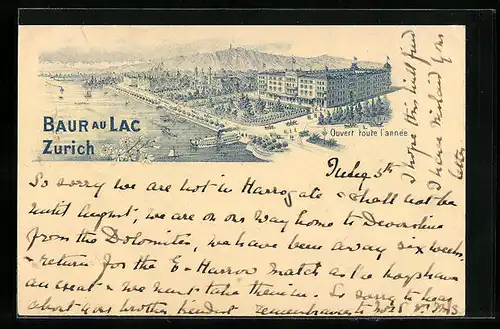 BAUR AU LAC
Zurich
Ouvert toute l'année
July 5th
So sorry we are not in Harrogate & shall not be
until August, we are on our way home to Devonshire
from the Dolomites, we have been away six weeks,
& return for the E & Harrow match as the boys have
an exeat & we must take them in. So sorry to hear
about your brother kindest remembrances to
I hope this will find
I have mislaid your
letter